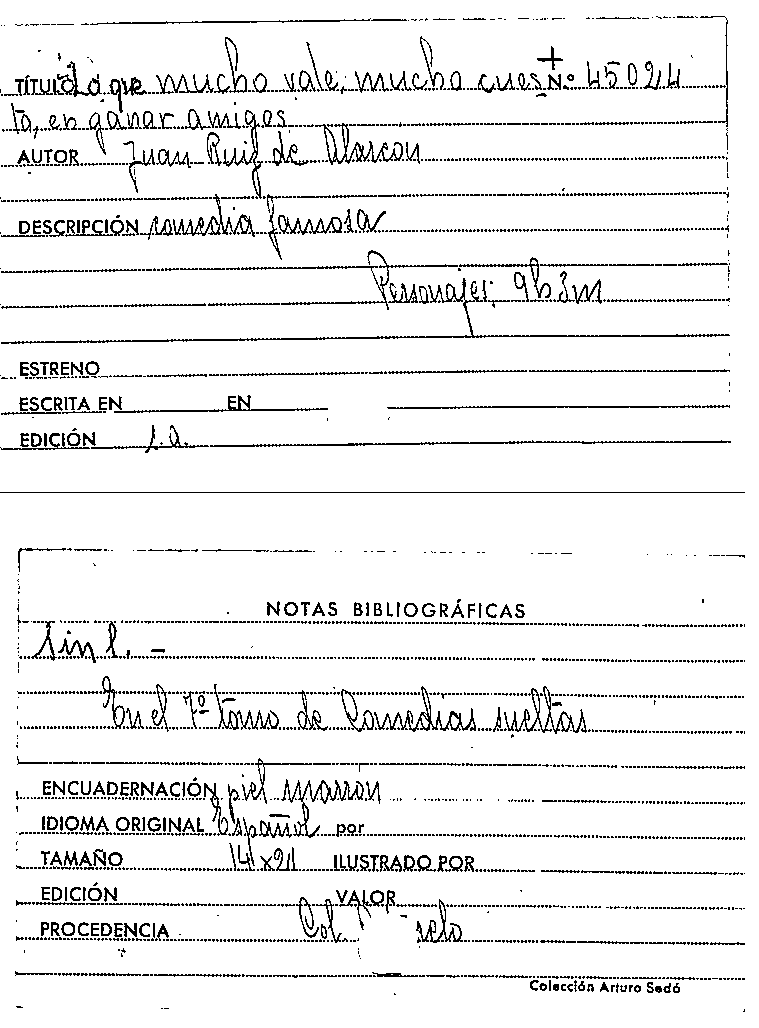 TÍTULO Lo que mucho vale, mucho cues N.º 45024
ta, en ganar amigos
AUTOR Juan Ruiz de Alarcon
DESCRIPCIÓN comedia famosa
Personajes: 9h 3m
ESTRENO
ESCRITA EN EN
EDICIÓN s.a.
NOTAS BIBLIOGRÁFICAS
Sin l. -
En el 7º tomo de Comedias sueltas
ENCUADERNACIÓN piel marrón
IDIOMA ORIGINAL Español por
TAMAÑO 14x21 ILUSTRADO POR
EDICIÓN VALOR
PROCEDENCIA Col.
Colección Arturo Sedó